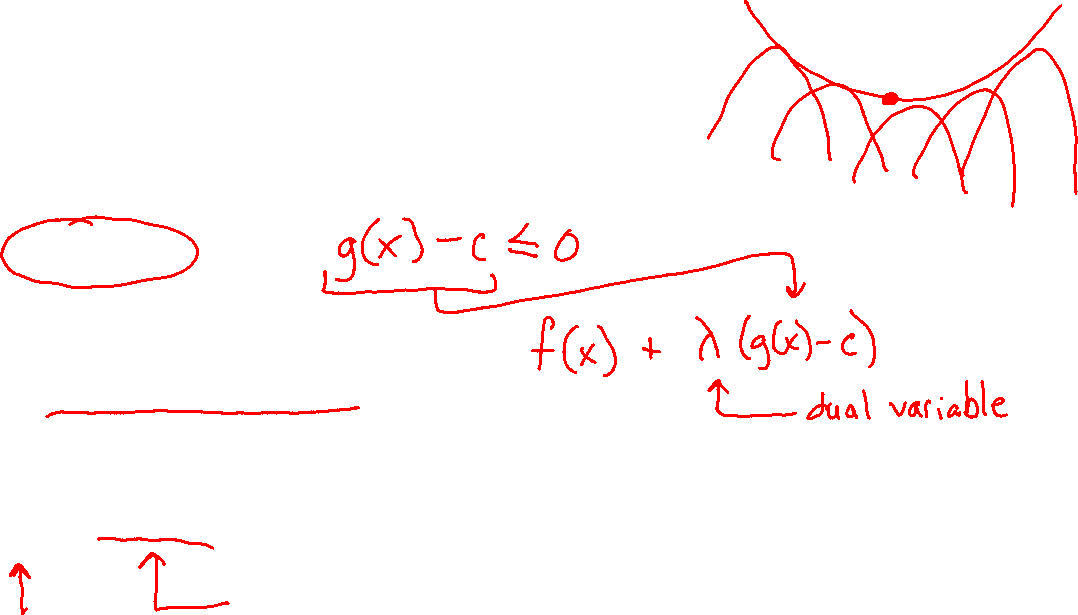 g(x) - c ≤ 0
f(x) + λ (g(x) - c)
dual variable